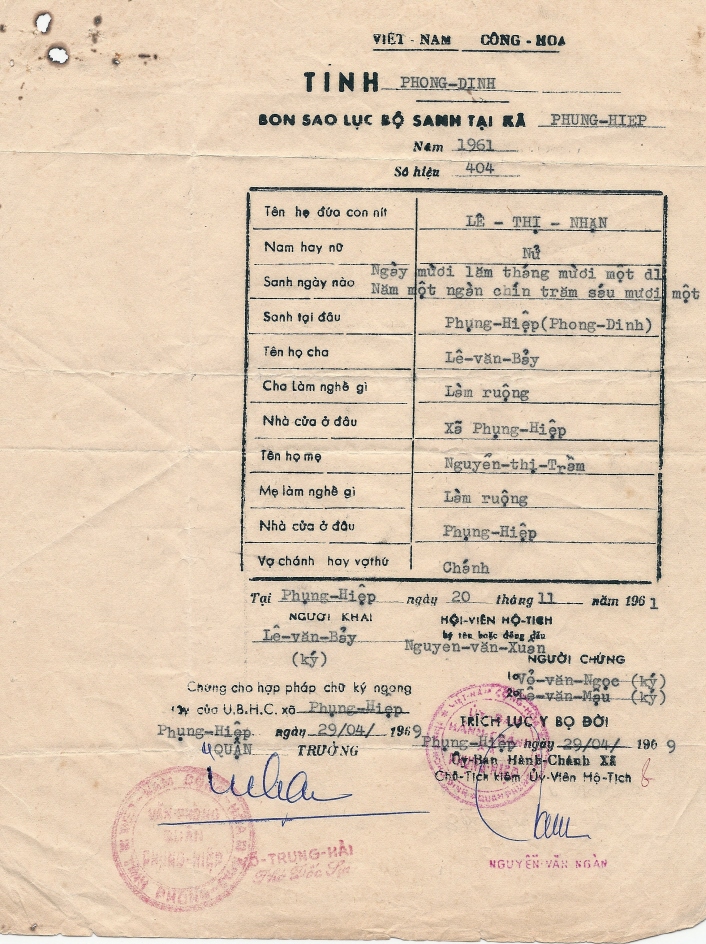 VIỆT - NAM CÔNG - HOA
TINH PHONG-DINH
BON SAO LỤC BỘ SANH TẠI XÃ PHUNG-HIEP
Năm 1961
Số hiệu 404
Tên họ đứa con nít LÊ - THỊ - NHẠN
Nam hay nữ Nử
Sanh ngày nào Ngày mười lăm tháng mười một dl
Năm một ngàn chín trăm sáu mươi một
Sanh tại đâu Phụng-Hiệp(Phong-Dinh)
Tên họ cha Lê-văn-Bảy
Cha làm nghề gì Làm ruộng
Nhà cửa ở đâu Xã Phụng-Hiệp
Tên họ mẹ Nguyễn-thị-Trầm
Mẹ làm nghề gì Làm ruộng
Nhà cửa ở đâu Phụng-Hiệp
Vợ chánh hay vợ thứ Chánh
Tại Phụng-Hiệp ngày 20 tháng 11 năm 1961
NGƯỜI KHAI
Lê-văn-Bảy
(ký)
HỘI-VIÊN HỘ-TỊCH
ký tên hoặc đóng dấu
Nguyen-văn-Xuân
NGƯỜI CHỨNG
1o Võ-văn-Ngọc (ký)
2o Lê-văn-Mậu (ký)
Chứng cho hợp pháp chữ ký ngang
của U.B.H.C. xã Phụng-Hiệp
Phụng-Hiệp ngày 29/04/ 1969
QUẬN TRƯỞNG
TRÍCH LỤC Y BỘ ĐỜI
Phụng-Hiệp ngày 29/04/ 1969
Ủy-Ban Hành-Chánh Xã
Chủ-Tịch kiêm Ủy-Viên Hộ-Tịch
VĂN-PHÒNG
QUẬN
PHỤNG-HIỆP
-TRUNG-HẢI
Phó Đốc Sự
NGUYỄN-VĂN NGÀN